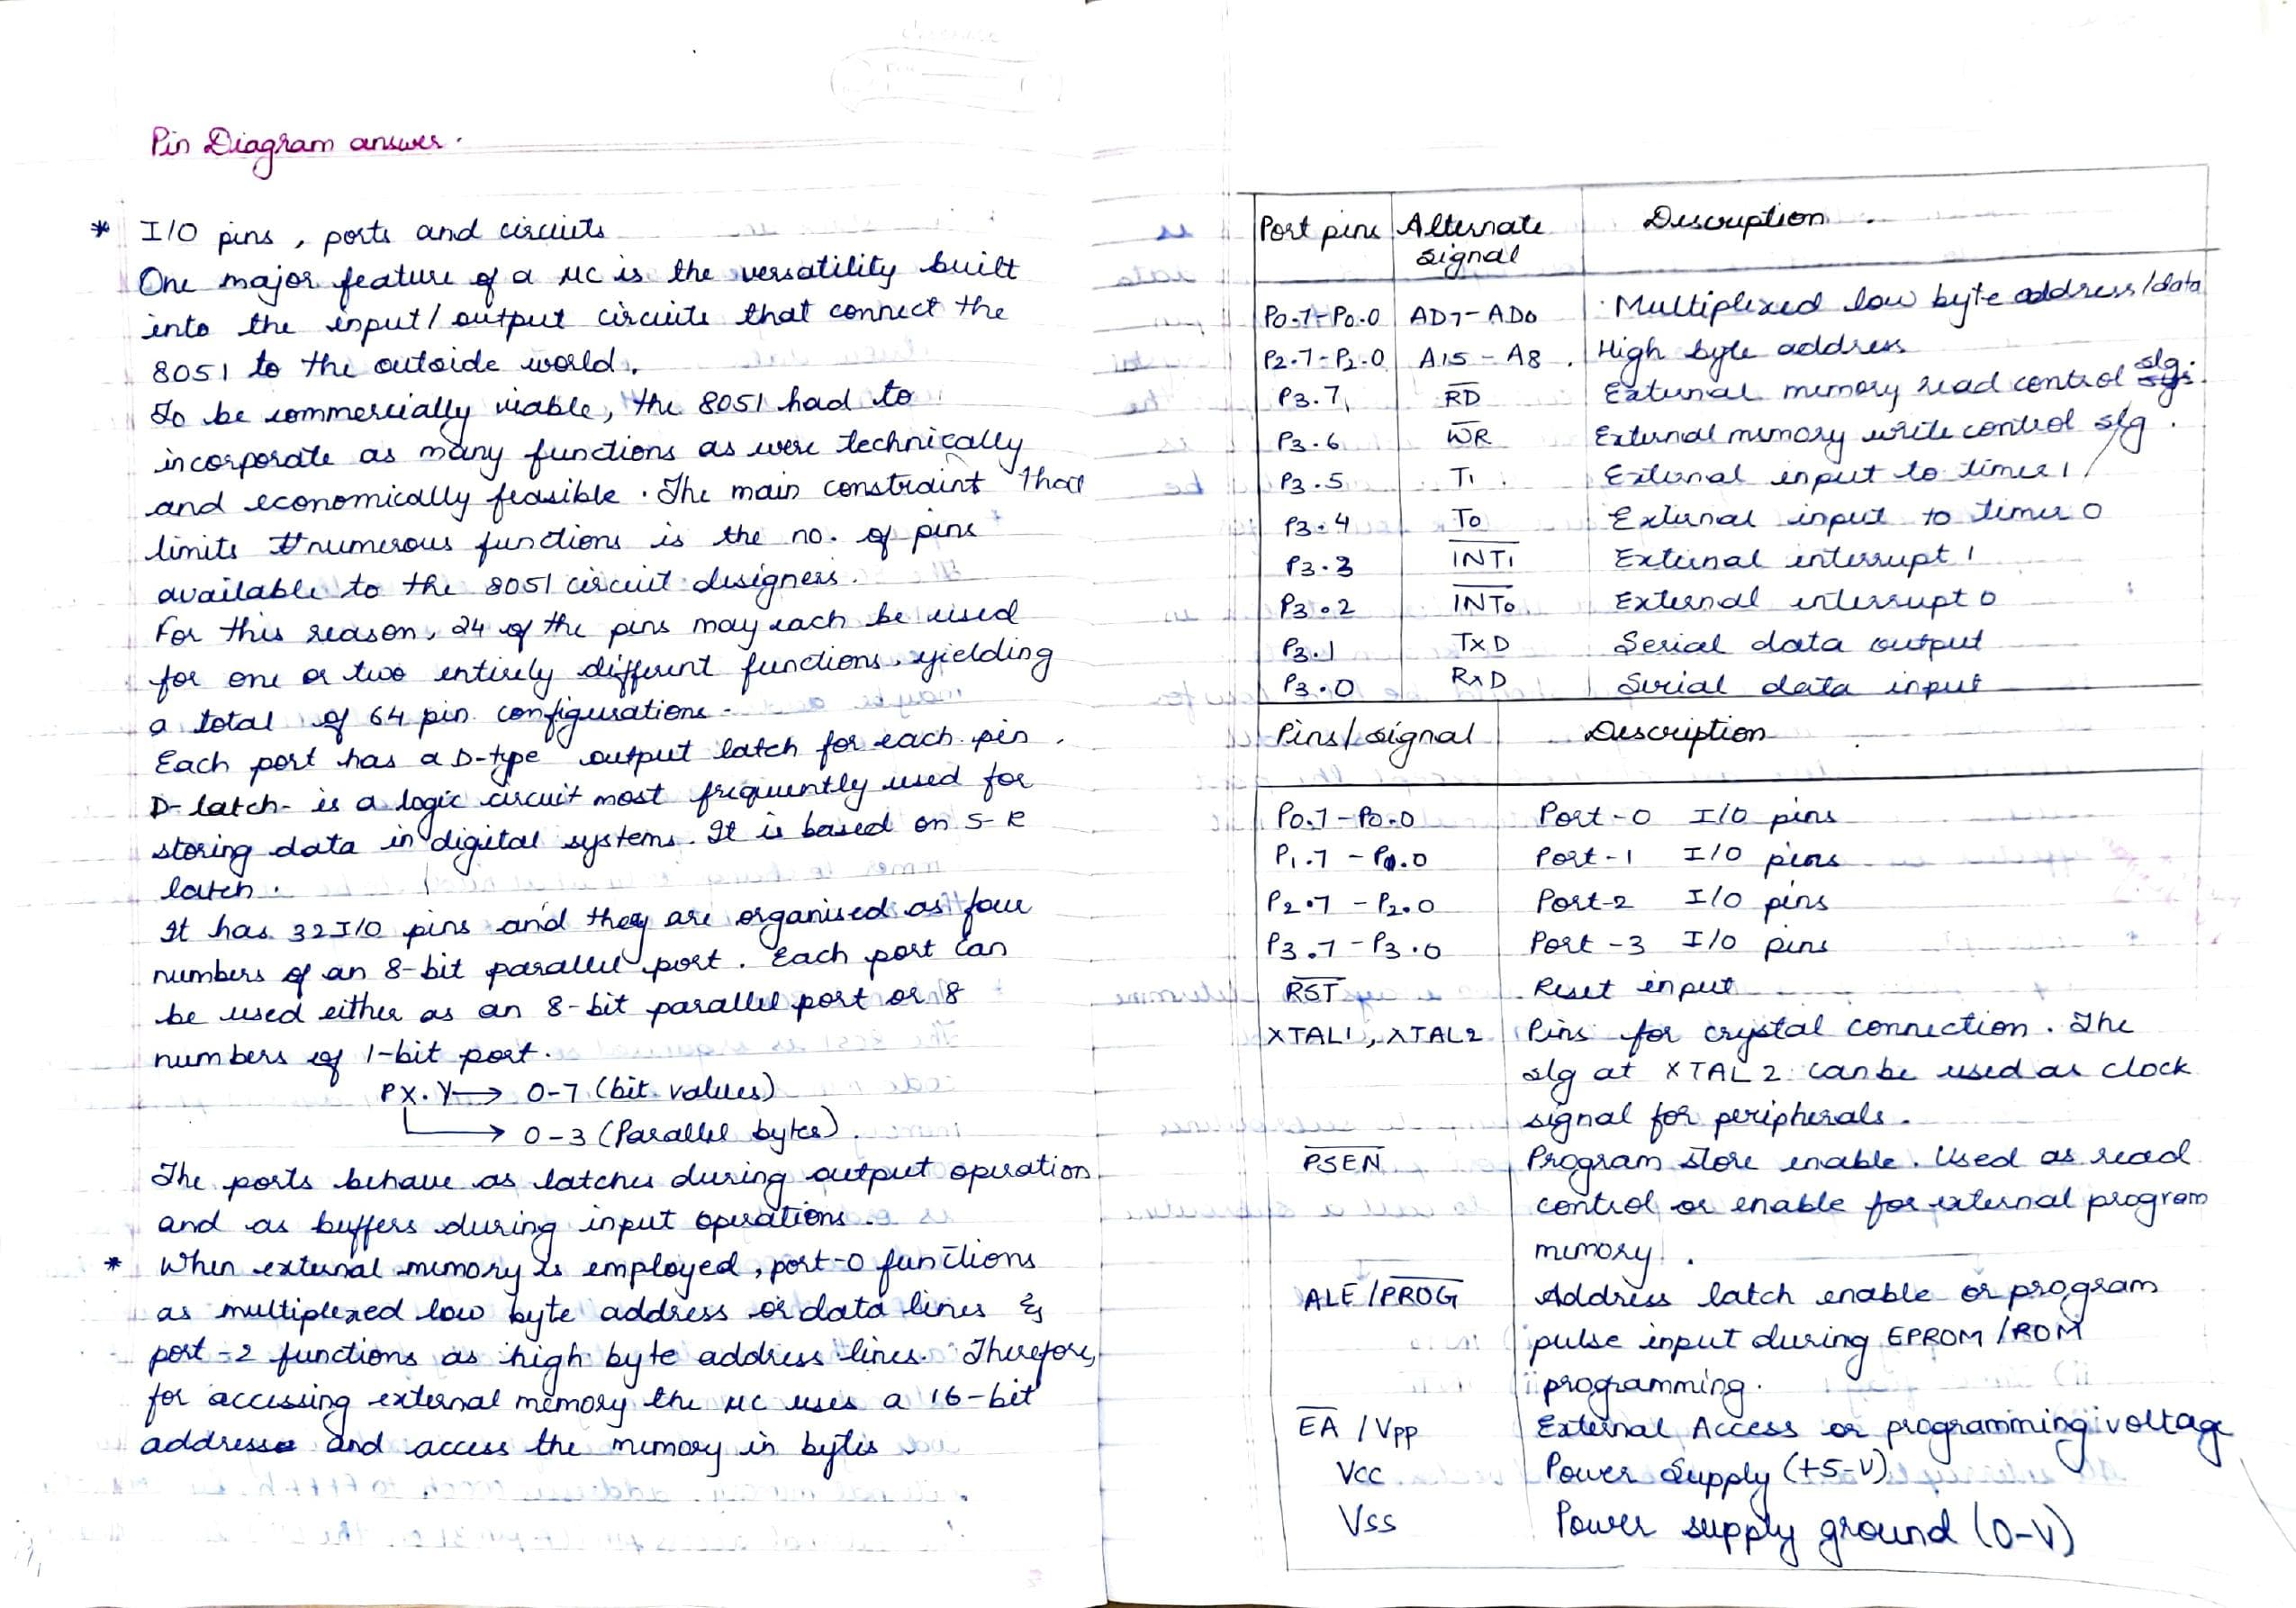 Pin Diagram answer.
* I/O pins, ports and circuits
One major feature of a μc is the versatility built
into the input/output circuits that connect the
8051 to the outside world.
To be commercially viable, the 8051 had to
incorporate as many functions as were technically
and economically feasible. The main constraint that
limits numerous functions is the no. of pins
available to the 8051 circuit designers.
For this reason, 24 of the pins may each be used
for one or two entirely different functions, yielding
a total of 64 pin configurations.
Each port has a D-type output latch for each pin.
D-latch- is a logic circuit most frequently used for
storing data in digital systems. It is based on S-R
latch.
It has 32 I/O pins and they are organised as four
numbers of an 8-bit parallel port. Each port can
be used either as an 8-bit parallel port or 8
numbers of 1-bit port.
PX.Y → 0-7 (bit values)
→ 0-3 (Parallel bytes).
The ports behave as latches during output operation
and as buffers during input operations.
* When external memory is employed, port-0 functions
as multiplexed low byte address or data lines &
port-2 functions as high byte address lines. Therefore,
for accessing external memory the μc uses a 16-bit
address and access the memory in bytes
Port pins Alternate signal Description
P0.7-P0.0 AD7-AD0 Multiplexed low byte address/data
P2.7-P2.0 A15-A8 High byte address
P3.7 R̅D̅ External memory read control slg.
P3.6 W̅R̅ External memory write control slg.
P3.5 T1 External input to timer 1
P3.4 T0 External input to timer 0
P3.3 I̅N̅T̅1̅ External interrupt 1
P3.2 I̅N̅T̅0̅ External interrupt 0
P3.1 TXD Serial data output
P3.0 RXD Serial data input
Pins/signal Description
P0.7-P0.0 Port-0 I/O pins
P1.7-P1.0 Port-1 I/O pins
P2.7-P2.0 Port-2 I/O pins
P3.7-P3.0 Port-3 I/O pins
R̅S̅T̅ Reset input
XTAL1, XTAL2 Pins for crystal connection. The
slg at XTAL2 can be used as clock
signal for peripherals.
P̅S̅E̅N̅ Program store enable. Used as read
control or enable for external program
memory.
ALE/P̅R̅O̅G̅ Address latch enable or program
pulse input during EPROM/ROM
programming.
E̅A̅/Vpp External Access or programming voltage
Vcc Power Supply (+5-V)
Vss Power supply ground (0-V)